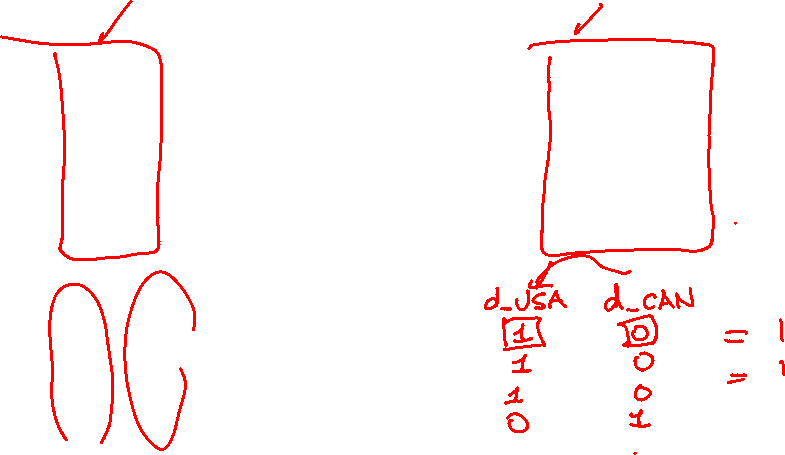 d_USA d_CAN
1 0 = 1
1 0
= 1
1 0
0 1